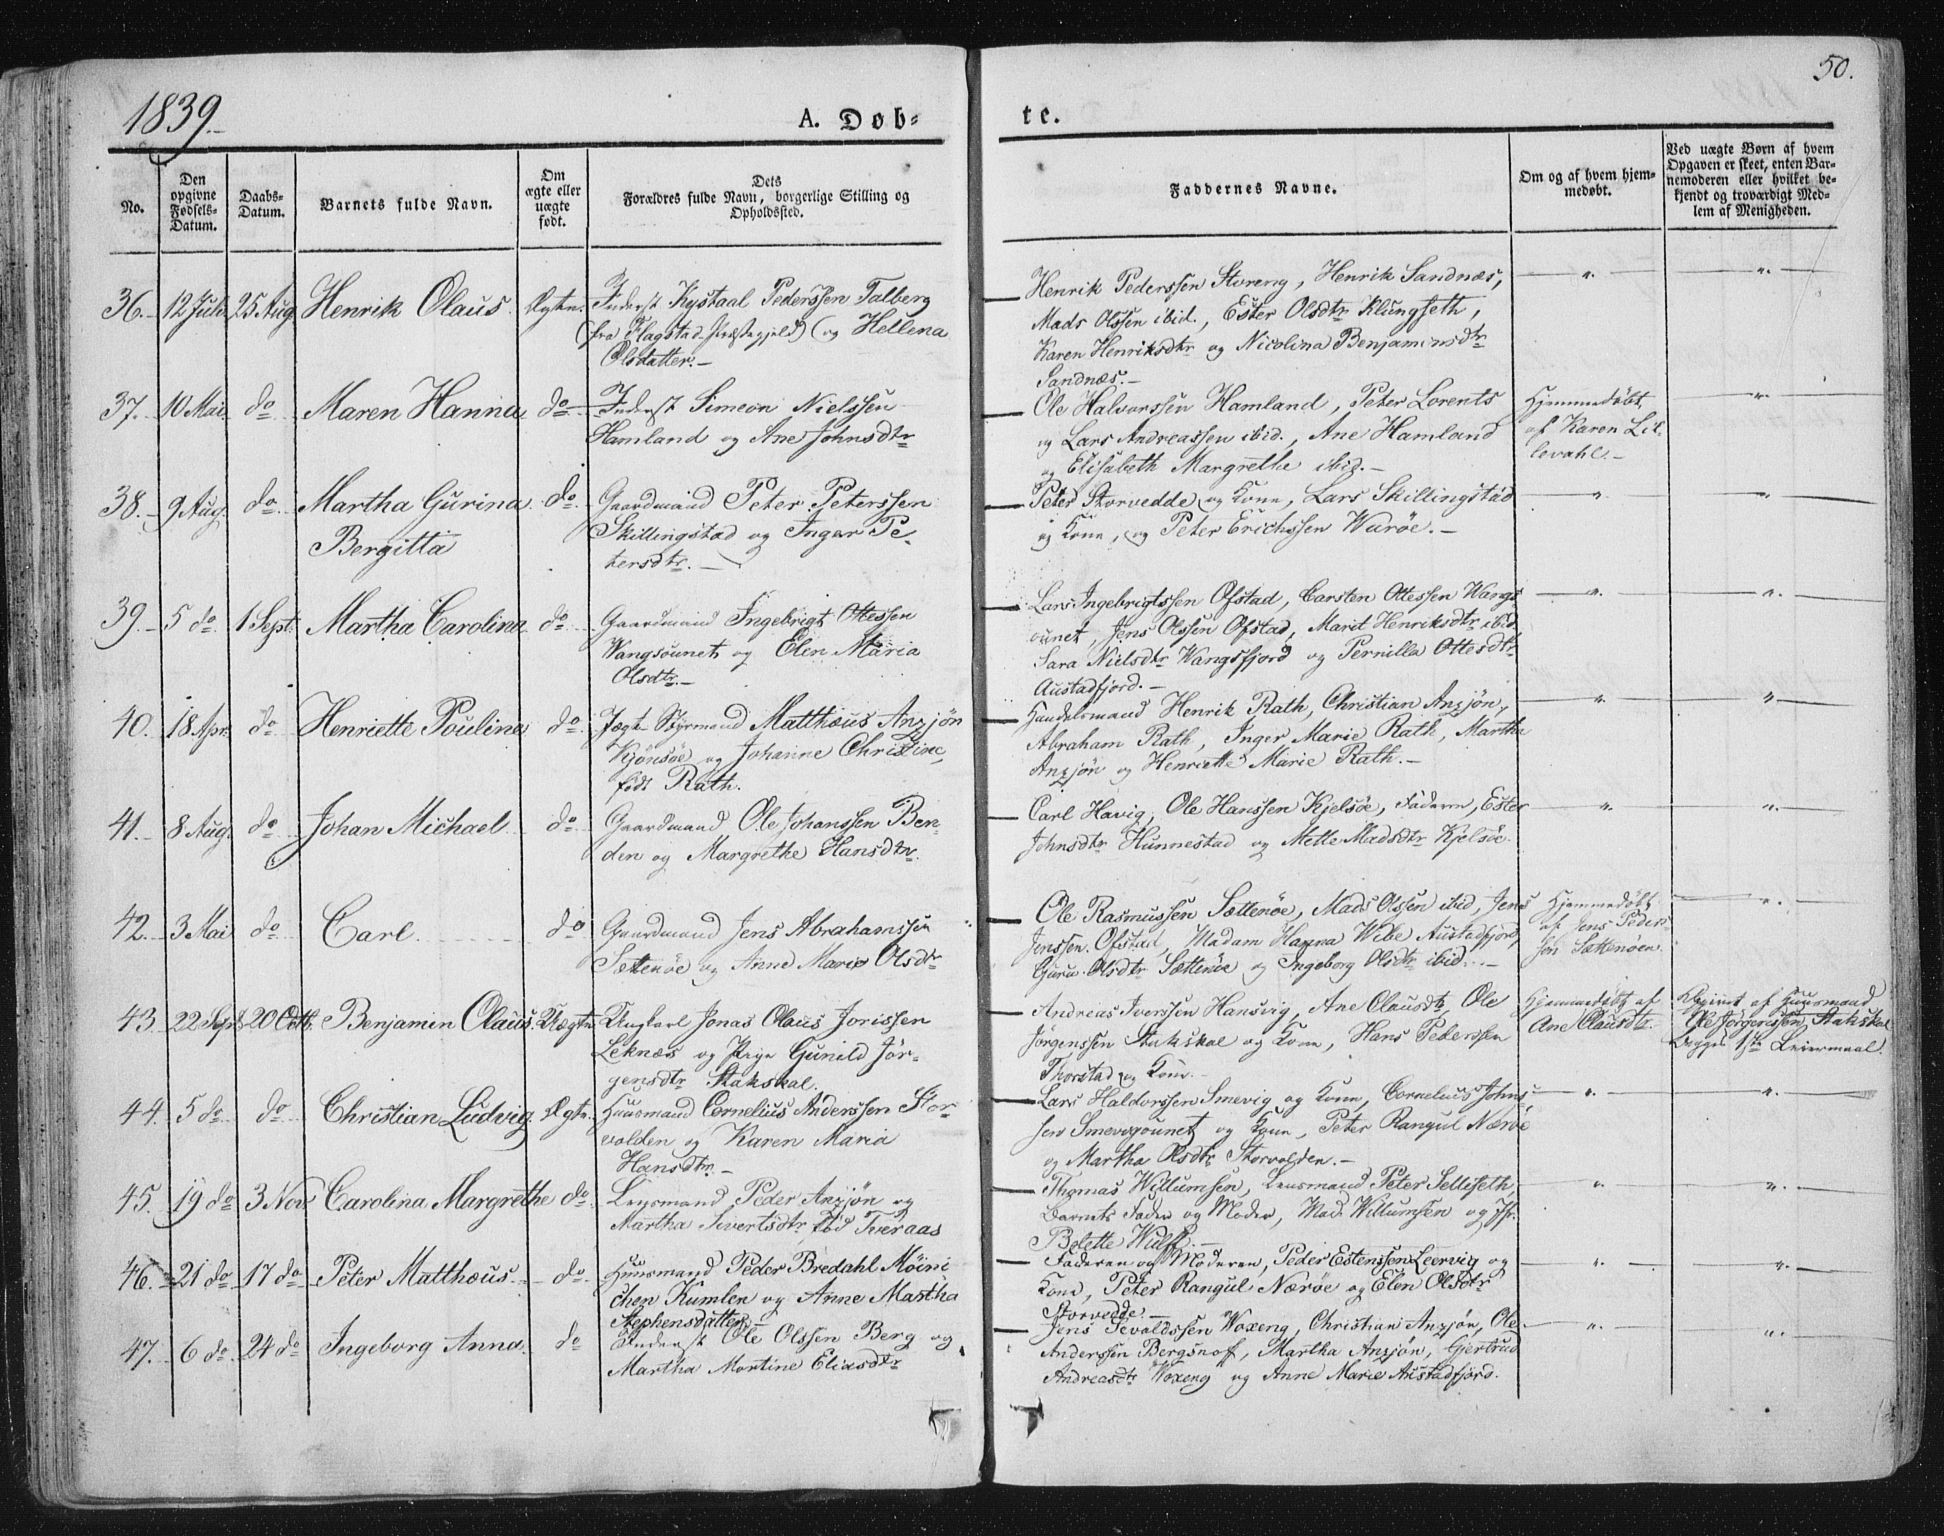 1839
A. Døb-
te.
50.
No.
Den opgivne Fødsels-Datum.
Daabs-Datum.
Barnets fulde Navn.
Om ægte eller uægte født.
Dets Forældres fulde Navn, borgerlige Stilling og Opholdssted.
Faddernes Navne.
Om og af hvem hjemmedøbt.
Ved uægte Børn af hvem Opgaven er skeet, enten Barnemoderen eller hvilket bekjendt og troværdigt Medlem af Menigheden.
36. 12 Juli 25 Aug Henrik Olaus Ægte. Inderst Kystaal Pederssen Talberg
(fra Flagstad Præstegjeld) og Hellena
Olsdatter.
Henrik Pederssen Storeng, Henrik Sandnæs,
Mads Olssen ibid., Ester Olsdtr Klungseth,
Karen Henriksdtr og Nicolina Benjaminsdtr
Sandnæs.
37. 10 Mai do Maren Hanna do Inderst Simeon Nielssen
Hamland og Ane Johnsdtr
Ole Halvorssen Hamland, Peter Lorents
og Lars Andreassen ibid., Ane Hamland
og Elisabeth Margrethe ibid.
Hjemmedøbt
af Karen Lil-
levahl.
38. 9 Aug. do Martha Gurina
Bergitta
do Gaardmand Peter Peterssen
Skillingstad og Inger Pe-
tersdtr.
Peter Storvedde og Kone, Lars Skillingstad
og Kone, og Peter Erichssen Warøe.
39. 5 do 1 Sept. Martha Carolina do Gaardmand Ingebrigt Ottessen
Wangsøunet og Elen Maria
Olsdtr.
Lars Ingebrigtssen Ofstad, Carsten Ottessen Wangs-
øunet, Jens Olssen Ofstad, Marit Henriksdtr ibid
Sara Nielsdtr Wangsfjord og Pernilla Ottesdtr
Austadfjord.
40. 18 Apr. do Henriette Poulina do Jægt Styrmand Matthæus Anzjøn
Kjønsøe og Johanne Christine,
født Rath.
Handelsmand Henrik Rath, Christian Anzjøn,
Abraham Rath, Inger Marie Rath, Martha
Anzjøn og Henriette Marie Rath.
41. 8 Aug. do Johan Michael do Gaardmand Ole Johanssen Ben-
den og Margrethe Hansdtr.
Carl Havig, Ole Hanssen Kjelsøe, Faderen, Ester
Johnsdtr Hunnestad og Mette Madsdtr Kjelsøe.
42. 3 Mai do Carl do Gaardmand Jens Abrahamssen
Sættenøe og Anne Marie Olsdtr
Ole Rasmussen Sættenøe, Mads Olssen ibid, Jens
Jenssen Ofstad, Madam Hanna Wibe Austadfjord,
Guru Olsdtr Sættenøe og Ingeborg Olsdtr ibid.
Hjemmedøbt
af Jens Peder-
sen Sættenøen.
43. 22 Sept 20 Octb. Benjamin Olaus. Uægte. Ungkarl Jonas Olaus Jorissen
Leknæs og Pige Gunild Jør-
gensdtr Stakskal.
Andreas Iverssen Hansvig, Ane Olausdtr, Ole
Jørgenssen Stakskal og Kone, Hans Pederssen
Thorstad og Kone.
Hjemmedøbt af
Ane Olausdtr.
Opgivet af Huusmand
Ole Jørgenssen Stakskal
Begges 1ste Leiermaal.
44. 5 do do Christian Ludvig. Ægte. Huusmand Cornelius Anderssen Stor-
volden og Karen Maria
Hansdtr.
Lars Haldorssen Smevig og Kone, Cornelius Johns-
sen Smevigounet og Kone, Peter Rangul Nærøe
og Martha Olsdtr Storvolden.
45. 19 do 3 Nov Carolina Margrethe do. Lensmand Peder Anzjøn og
Martha Sivertsdtr, fød Tveraas
Thomas Willumsen, Lensmand Peter Selliseth,
Barnets Fader og Moder, Mad. Willumsen og Jfr.
Bolette Wulff.
46. 21 do 17 do Peter Matthæus. do. Huusmand Peder Bredahl Møini
chen Kumlen og Anne Martha
Stephensdatter.
Faderen og Moderen, Peder Estenssen Leervig og
Kone, Peter Rangul Nærøe og Elen Olsdtr
Storvedde.
47. 6 do 24 do Ingeborg Anna. do Inderst Ole Olssen Berg og
Martha Martine Eliasdtr
Jens Tevaldssen Woxeng, Christian Anzjøn, Ole
Anderssen Bergsnof, Martha Anzjøn, Gjertrud
Andreasdtr Woxeng og Anne Marie Austadfjord.